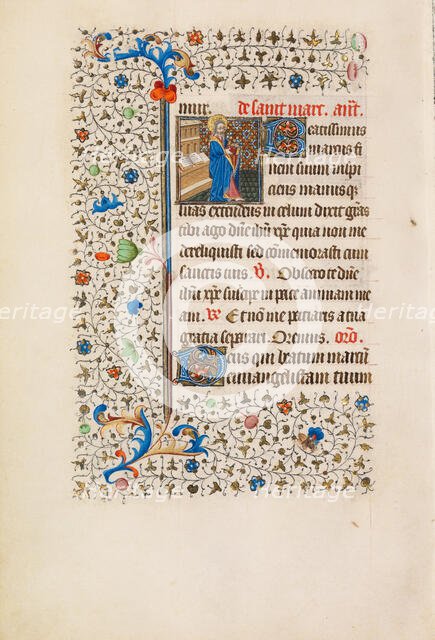 mur. de saint marc. añt.
Beatissimus
marcus fi
nem suum inspi
ciens manusq
suas extendens in celum dixit grãs
tibi ago dñe ihũ xp̃e quia non me
dereliquisti sed cõmemorasti cum
sanctis tuis. V. Obsecro te dñe
ihũ xp̃e suscipe in pace animam me
am. R. Et nõ me paciaris a tua
gratia separari. Oremus. orõ.
Deus qui beatum marcũ
euangelistam tuum